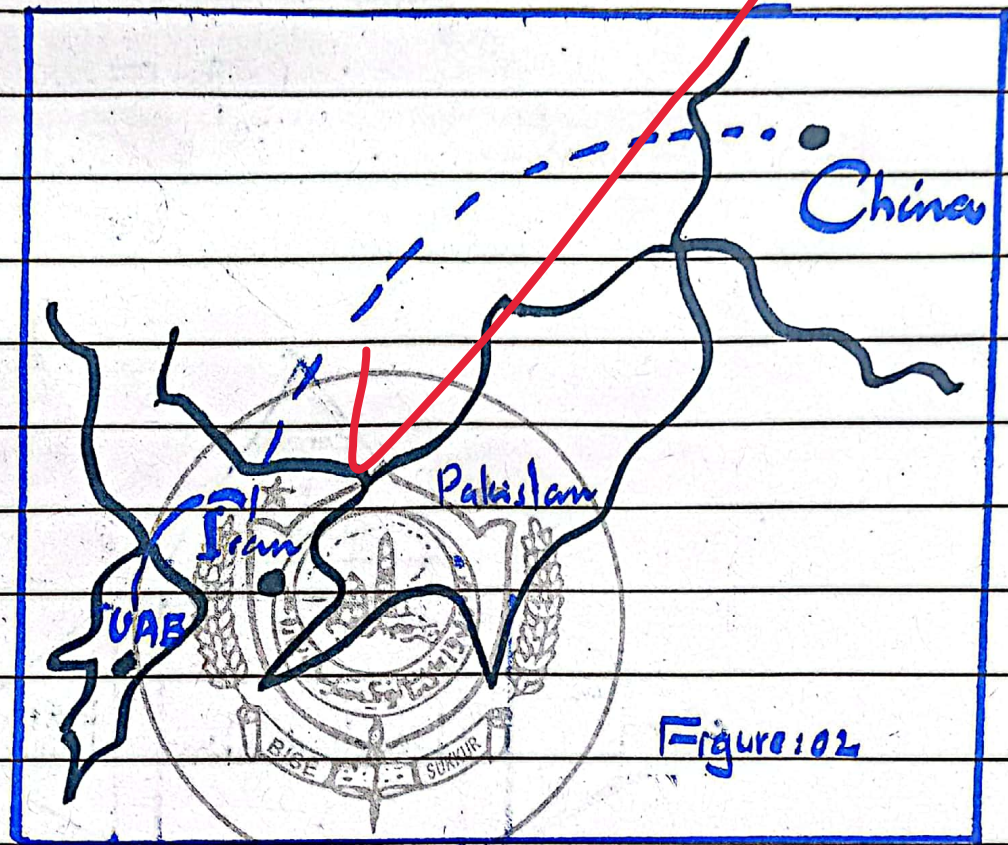 China
Pakistan
Iran
UAE
Figure:02
BISE SUKKUR